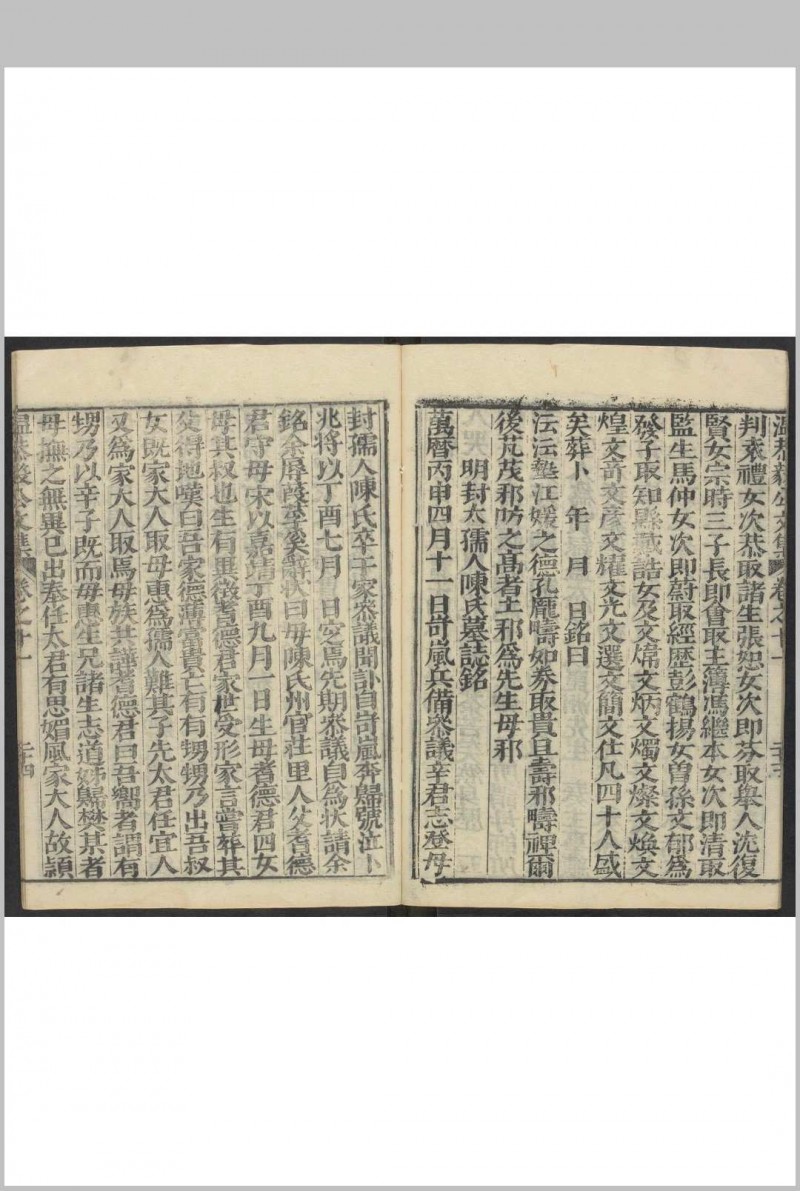 溫恭毅公文集 卷之十一 二十三
判袁禮女次恭取諸生張恕女次即芬取舉人冼復
賢女宗時三子長即會取主簿馮繼本女次即清取
監生馬仲女次即蔚取經歷彭鶴揚女曾孫文郁為
發子取知縣戴誥女及文煒文炳文燭文燦文煥文
煌文竒文彥文耀文光文選文簡文仕凡四十人盛
矣葬卜 年 月 日銘曰
沄沄墊江媛之德孔厖疇如叅取貴且壽邪疇禆爾
後芃茂邪吻之高者土邪為先生母邪
明封太孺人陳氏墓誌銘
萬曆丙申四月十一日岢嵐兵備叅議辛君志登母
封孺人陳氏卒于家叅議聞訃自岢嵐奔歸號泣卜
兆將以丁酉七月 日窆焉先期叅議自為狀請余
銘余辱葭莩矣辭狀曰母陳氏州官莊里人父耆德
君守母宋以嘉靖丁酉九月一日生母耆德君四女
母其叔也生有異徵耆德君家世受形家言嘗葬其
父得地嘆曰吾家德薄當貴亡有有甥甥乃出吾叔
女既家大人取母惠為孺人難其子先太君任宜人
又為家大人取焉母族共譁耆德君曰吾嚮者謂有
甥乃以辛子既而毋惠生兄諸生志道姊歸樊某者
母撫之無異己出奉任太君有思媚風家大人故穎
卷之十一 二十四